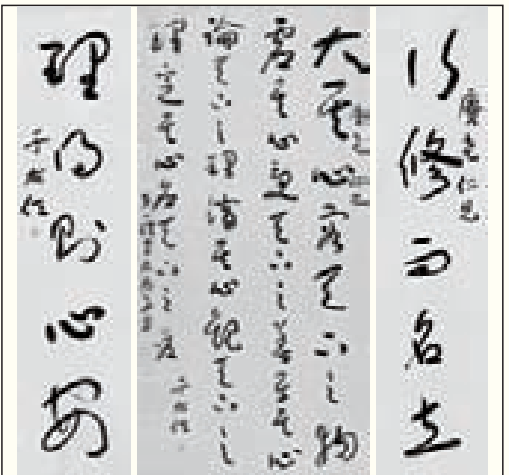 行修而名立
大其心容天下之物
虛其心受天下之善平其心
論天下之事潛其心觀天下之
理定其心應天下之變
于右任
理得則心安
于右任